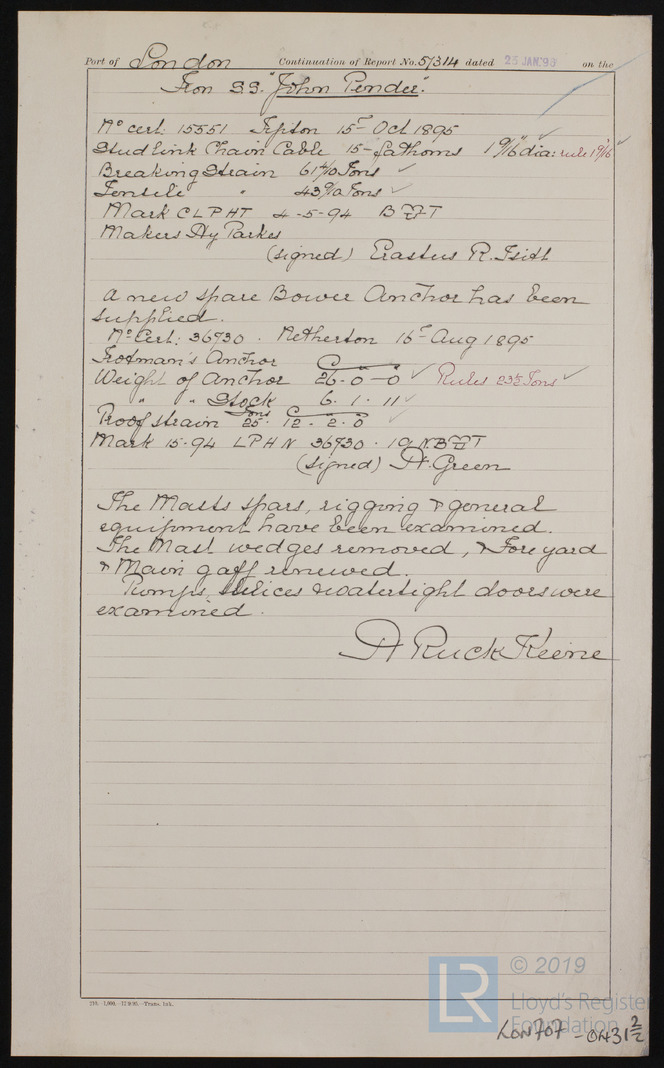 Port of London Continuation of Report No. 51314 dated 25 JAN. 96 on the
Iron S.S. "John Pender".
No cert: 15551 Tipton 15th Oct 1895
Stud link Chain Cable 15 - fathoms 1 9/16 dia: rule 1 9/16
Breaking Strain 61 4/10 Tons
Tensile " 43 9/10 Tons
Mark C L P H T 4-5-94 B T
Makers Hy Parkes
(signed) Erastus R. Isitt
A new spare Bower Anchor has been
supplied.
No Cert: 36730. Netherton 16th Aug 1895
Trotman's Anchor
Weight of Anchor C 26-0-0 Rules 23½ Tons
" " Stock 6. 1. 11
Proof strain Tons 25. C 12. 2. 0
Mark 15-94 L P H N 36730. N.B T
(signed) H. Green
The Masts spars, rigging & general
equipment have been examined.
The Mast wedges removed, & Fore yard
& Main gaff renewed.
Pumps, sluices & watertight doors were
examined.
H Ruck Keene
219.-1,000.-Trans. Ink.
LR © 2019
Lloyd's Register
Foundation
LON707-0431 2/2